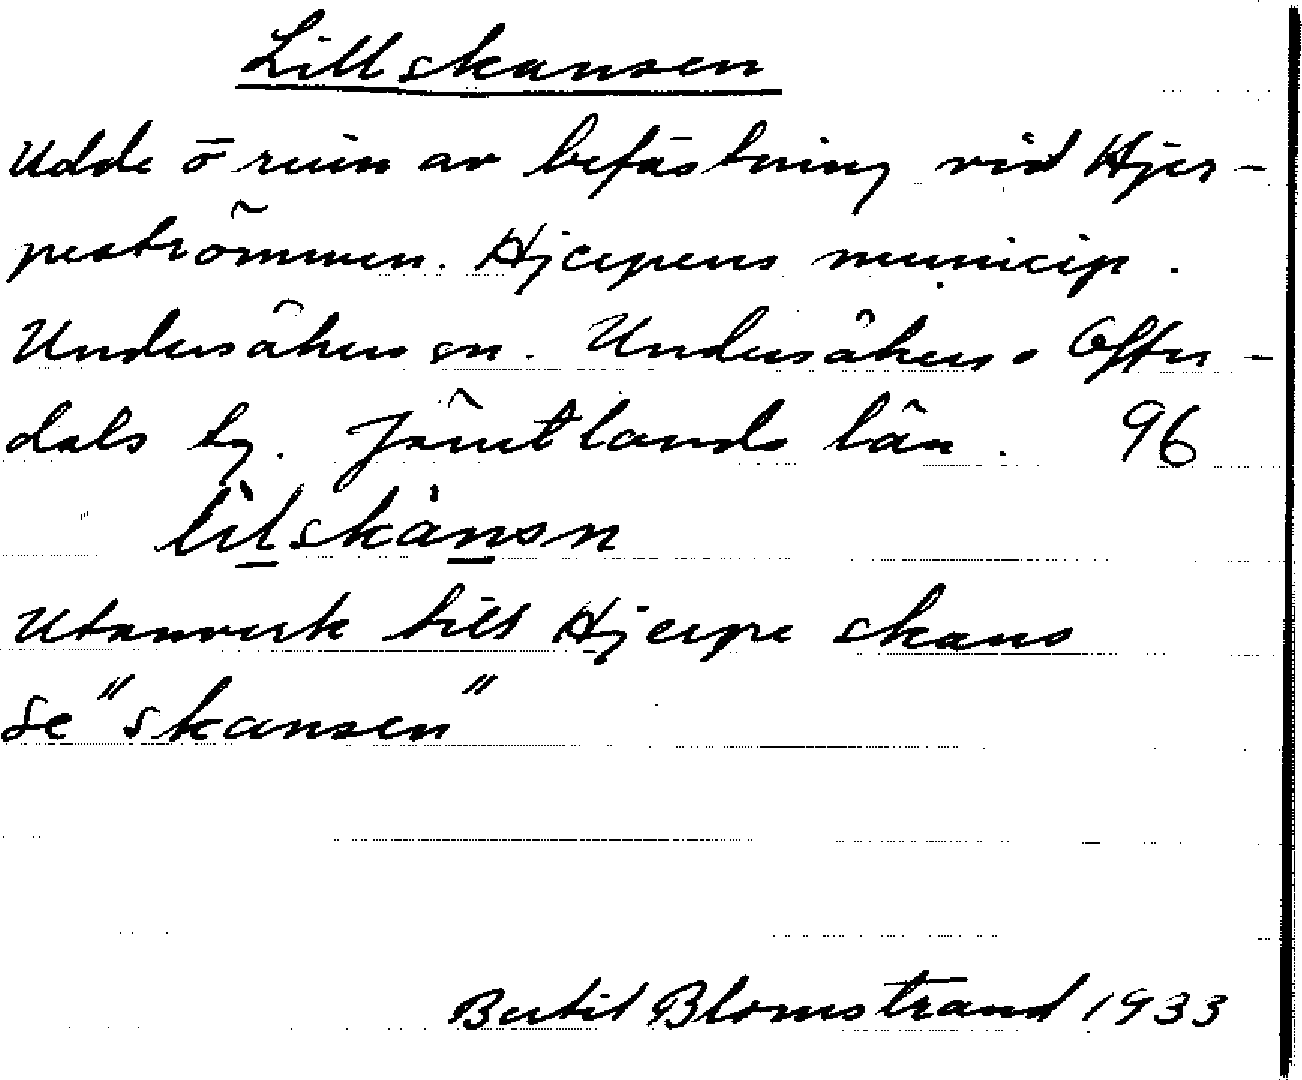 Lillskansen
Udde o ruin av befästning vid Hjer-
peströmmen. Hjerpens municip.
Undersåkers sn. Undersåkers o Offer-
dals tg. Jämtlands län. 96
lilskansn
Utanverk till Hjerpe skans
se "skansen"
Bertil Blomstrand 1933